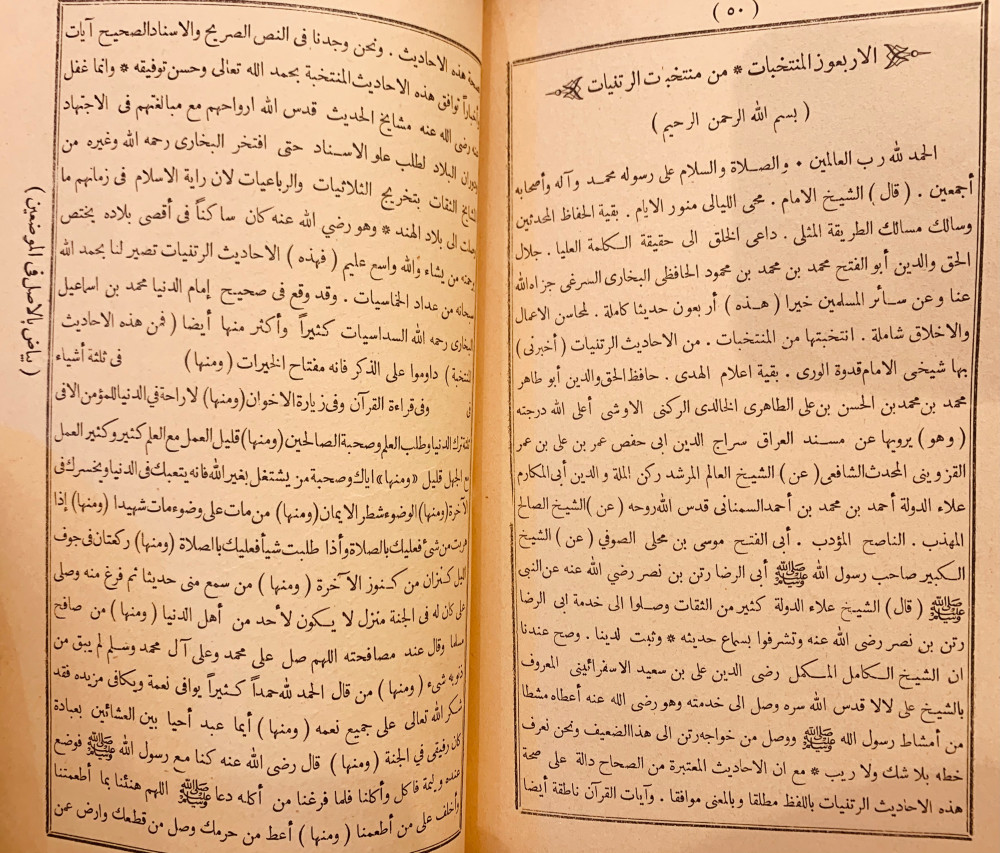 ( ٥٠ )
الاربعون المنتخبات * من منتخبات الرتنيات
( بسم الله الرحمن الرحيم )
الحمد لله رب العالمين . والصلاة والسلام على رسوله محمد وآله وأصحابه
أجمعين . ( قال ) الشيخ الامام . محي الليالى منور الايام . بقية الحفاظ المحدثين
وسالك مسالك الطريقة المثلى . داعى الخلق الى حقيقة الكلمة العليا . جلال
الحق والدين أبو الفتح محمد بن محمد بن محمود الحافظى البخارى السرغى جزاه الله
عنا وعن سائر المسلمين خيرا ( هذه ) أربعون حديثا كاملة . لمحاسن الاعمال
والاخلاق شاملة . انتخبتها من المنتخبات . من الاحاديث الرتنيات ( أخبرنى )
بها شيخى الامام قدوة الورى . بقية اعلام الهدى . حافظ الحق والدين أبو طاهر
محمد بن محمد بن الحسن بن على الطاهرى الخالدى الركنى الاوشى أعلى الله درجته
( وهو ) يرويها عن مسند العراق سراج الدين ابى حفص عمر بن على بن عمر
القزوينى المحدث الشافعى ( عن ) الشيخ العالم المرشد ركن الملة والدين أبى المكارم
علاء الدولة أحمد بن محمد بن أحمد السمنانى قدس الله روحه ( عن ) الشيخ الصالح
المهذب . الناصح المؤدب . أبى الفتح موسى بن محلى الصوفي ( عن ) الشيخ
الكبير صاحب رسول الله ﷺ أبى الرضا رتن بن نصر رضي الله عنه عن النبي
ﷺ ( قال ) الشيخ علاء الدولة كثير من الثقات وصلوا الى خدمة ابى الرضا
رتن بن نصر رضى الله عنه وتشرفوا بسماع حديثه * وثبت لدينا . وصح عندنا
ان الشيخ الكامل المكمل رضى الدين على بن سعيد الاسفرائينى المعروف
بالشيخ على لالا قدس الله سره وصل الى خدمته وهو رضى الله عنه أعطاه مشطا
من أمشاط رسول الله ﷺ ووصل من خواجه رتن الى هذا الضعيف ونحن نعرف
خطه بلا شك ولا ريب * مع ان الاحاديث المعتبرة من الصحاح دالة على صحة
هذه الاحاديث الرتنيات باللفظ مطلقا وبالمعنى موافقا . وآيات القرآن ناطقة أيضا
صحة هذه الاحاديث . ونحن وجدنا فى النص الصريح والاسناد الصحيح آيات
وأخباراً توافق هذه الاحاديث المنتخبة بحمد الله تعالى وحسن توفيقه * وانما غفل
عنه رضى الله عنه مشايخ الحديث قدس الله ارواحهم مع مبالغتهم فى الاجتهاد
ودوران البلاد لطلب علو الاسناد حتى افتخر البخارى رحمه الله وغيره من
المشايخ الثقات بتخريج الثلاثيات والرباعيات لان راية الاسلام فى زمانهم ما
وصلت الى بلاد الهند * وهو رضي الله عنه كان ساكناً فى أقصى بلاده يختص
برحمته من يشاء والله واسع عليم ( فهذه ) الاحاديث الرتنيات تصير لنا بحمد الله
سبحانه من عداد الخماسيات . وقد وقع فى صحيح إمام الدنيا محمد بن اسماعيل
البخارى رحمه الله السداسيات كثيراً وأكثر منها أيضا ( فمن هذه الاحاديث
المنتخبة ) داوموا على الذكر فانه مفتاح الخيرات ( ومنها ) فى ثلثة أشياء
فى وفى قراءة القرآن وفى زيارة الاخوان (ومنها) لا راحة فى الدنيا للمؤمن الا فى
ثلثة ترك الدنيا وطلب العلم وصحبة الصالحين (ومنها) قليل العمل مع العلم كثير وكثير العمل
مع الجهل قليل «ومنها» اياك وصحبة من يشتغل بغير الله فانه يتعبك فى الدنيا ويخسرك فى
الآخرة (ومنها) الوضوء شطر الايمان (ومنها) من مات على وضوء مات شهيدا (ومنها) إذا
هربت من شئ فعليك بالصلاة وأذا طلبت شيأ فعليك بالصلاة (ومنها) ركعتان فى جوف
الليل كنزان من كنوز الآخرة ( ومنها ) من سمع منى حديثا ثم فرغ منه وصلى
على كان له فى الجنة منزل لا يكون لأحد من أهل الدنيا ( ومنها ) من صافح
مسلما وقال عند مصافحته اللهم صل على محمد وعلى آل محمد وسلم لم يبق من
ذنوبه شىء ( ومنها ) من قال الحمد لله حمداً كثيراً يوافى نعمة ويكافى مزيده فقد
شكر الله تعالى على جميع نعمه ( ومنها ) أيما عبد أحيا بين العشائين بعبادة
كان رفيقى في الجنة ( ومنها ) قال رضى الله عنه كنا مع رسول الله ﷺ فوضع
عنده وليمة فاكل وأكلنا فلما فرغنا من أكله دعا ﷺ اللهم هنئنا بما أطعمتنا
وأخلف على من أطعمنا ( ومنها ) أعط من حرمك وصل من قطعك وارض عمن
( بياض بالاصل فى الموضعين )